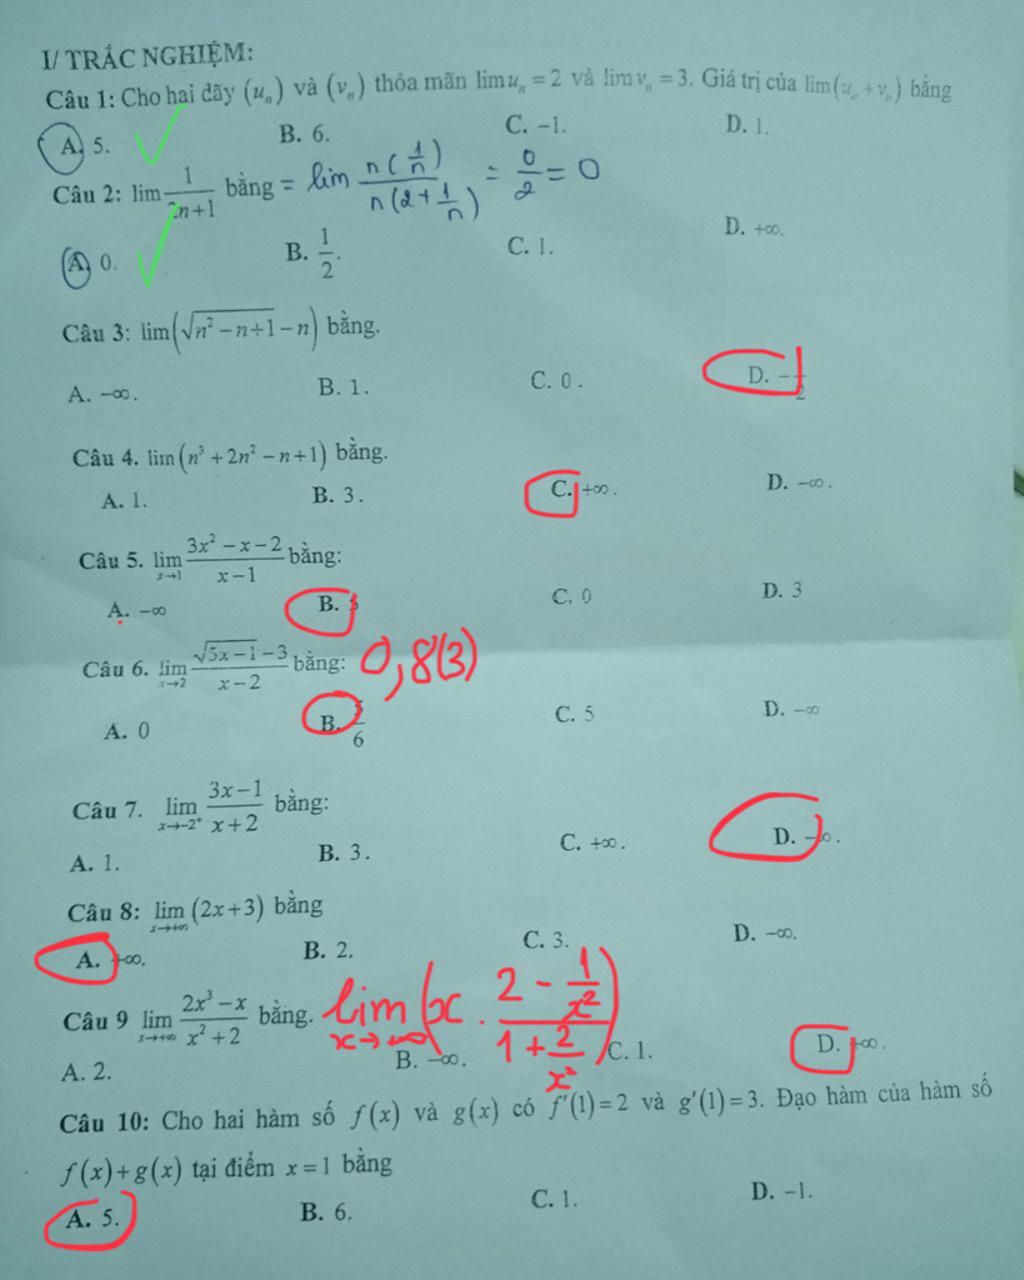 I/ TRẮC NGHIỆM:
Câu 1: Cho hai dãy (uₙ) và (vₙ) thỏa mãn lim uₙ = 2 và lim vₙ = 3. Giá trị của lim(uₙ + vₙ) bằng
A. 5. B. 6. C. −1. D. 1.
Câu 2: lim 1/(2n+1) bằng = lim n(1/n)/n(2+1/n) = 0/2 = 0
A. 0. B. 1/2. C. 1. D. +∞.
Câu 3: lim(√(n² − n + 1) − n) bằng.
A. −∞. B. 1. C. 0. D. −1/2
Câu 4. lim(n³ + 2n² − n + 1) bằng.
A. 1. B. 3. C. +∞. D. −∞.
Câu 5. lim x→1 (3x² − x − 2)/(x − 1) bằng:
A. −∞ B. 5 C. 0 D. 3
Câu 6. lim x→2 (√(5x−1) − 3)/(x − 2) bằng: 0,8(3)
A. 0 B. 5/6 C. 5 D. −∞
Câu 7. lim x→−2⁺ (3x−1)/(x+2) bằng:
A. 1. B. 3. C. +∞. D. −∞.
Câu 8: lim x→+∞ (2x+3) bằng
A. +∞. B. 2. C. 3. D. −∞.
Câu 9 lim x→+∞ (2x³ − x)/(x² + 2) bằng. lim x→+∞ (x · (2 − 1/x²)/(1 + 2/x²))
A. 2. B. −∞. C. 1. D. +∞.
Câu 10: Cho hai hàm số f(x) và g(x) có f′(1) = 2 và g′(1) = 3. Đạo hàm của hàm số
f(x) + g(x) tại điểm x = 1 bằng
A. 5. B. 6. C. 1. D. −1.